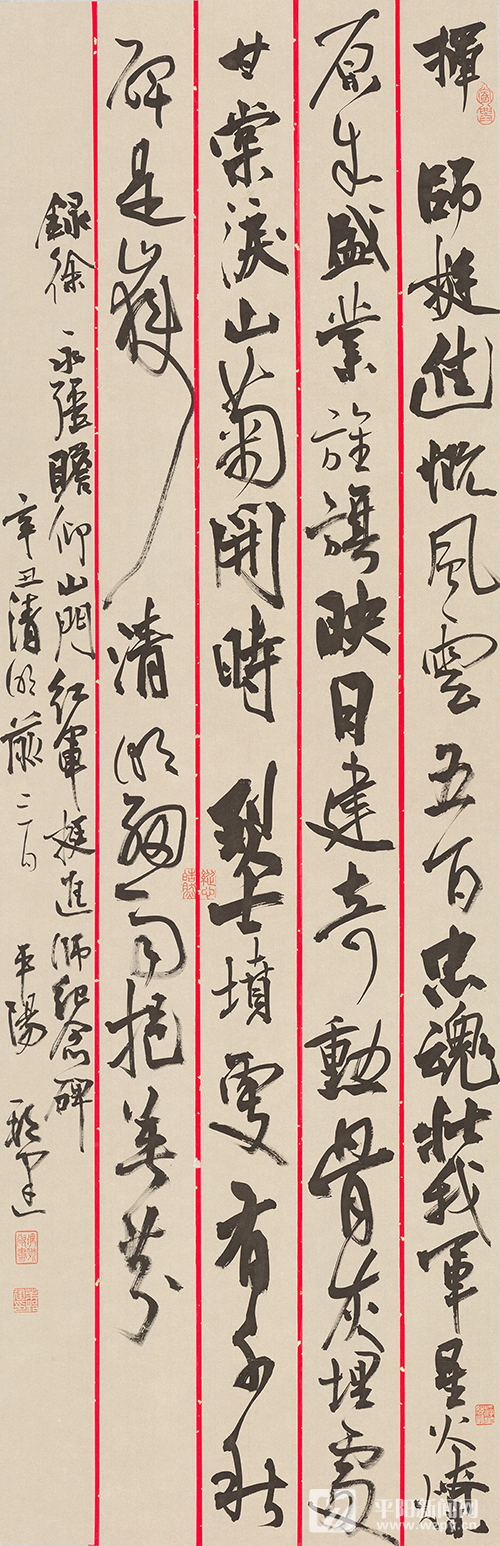 揮師挺進慨風雲五百忠魂壯我軍星火燎
原生盛業旌旗映日建奇勳骨灰埋處
甘棠淚山菊開時烈士墳更有千秋
碑是清明細雨挹英芬
錄徐永強瞻仰山門紅軍挺進師紀念碑
辛丑清明前三日 平陽
平阳新闻网